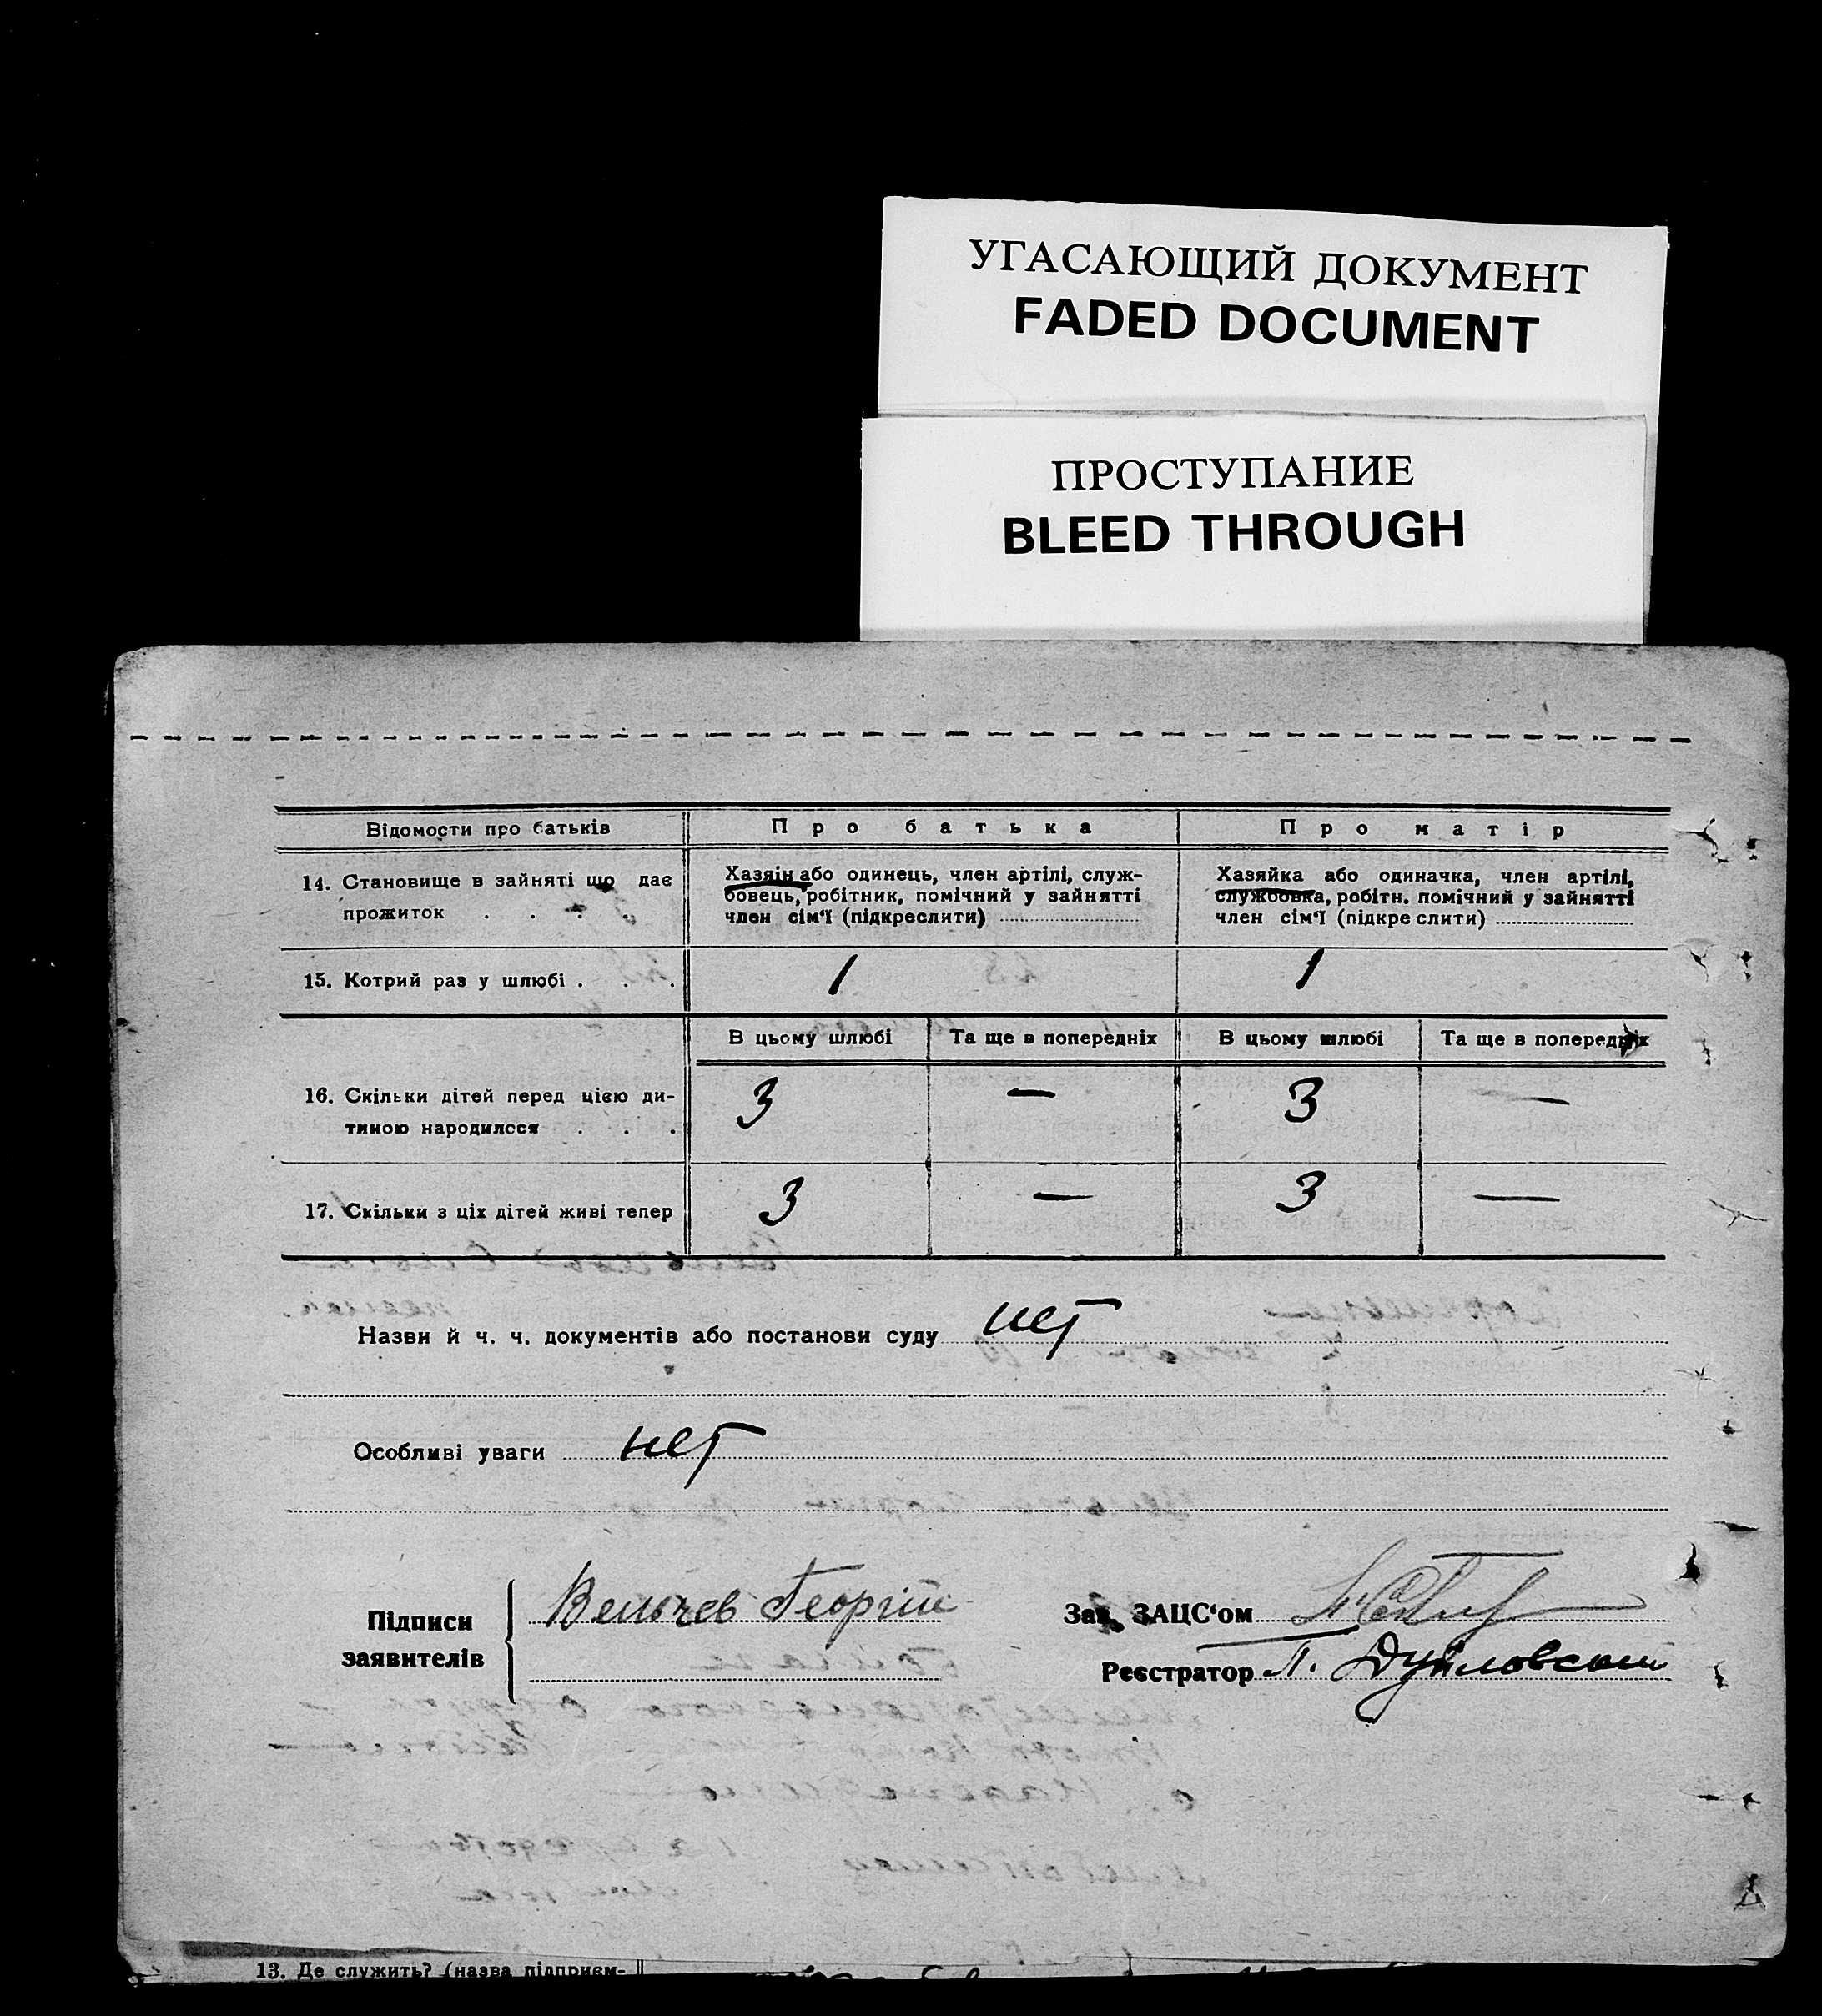 УГАСАЮЩИЙ ДОКУМЕНТ
FADED DOCUMENT
ПРОСТУПАНИЕ
BLEED THROUGH
Відомости про батьків
Про батька
Про матір
14. Становище в зайняті що дає
прожиток . . . .
Хазяїн або одинець, член артілі, служ-
бовець, робітник, помічний у зайнятті
член сім‘ї (підкреслити)
Хазяйка або одиначка, член артілі,
службовка, робітн. помічний у зайнятті
член сім‘ї (підкреслити)
15. Котрий раз у шлюбі . . .
1
1
В цьому шлюбі
Та ще в попередніх
В цьому шлюбі
Та ще в попередніх
16. Скільки дітей перед цією ди-
тиною народилося . . .
3
—
3
—
17. Скільки з ціх дітей живі тепер
3
—
3
—
Назви й ч. ч. документів або постанови суду нет
Особливі уваги нет
Підписи
заявителів
Вельчев Георгій
Зав. ЗАЦС‘ом
Реєстратор П.
13. Де служить? (назва підприєм-